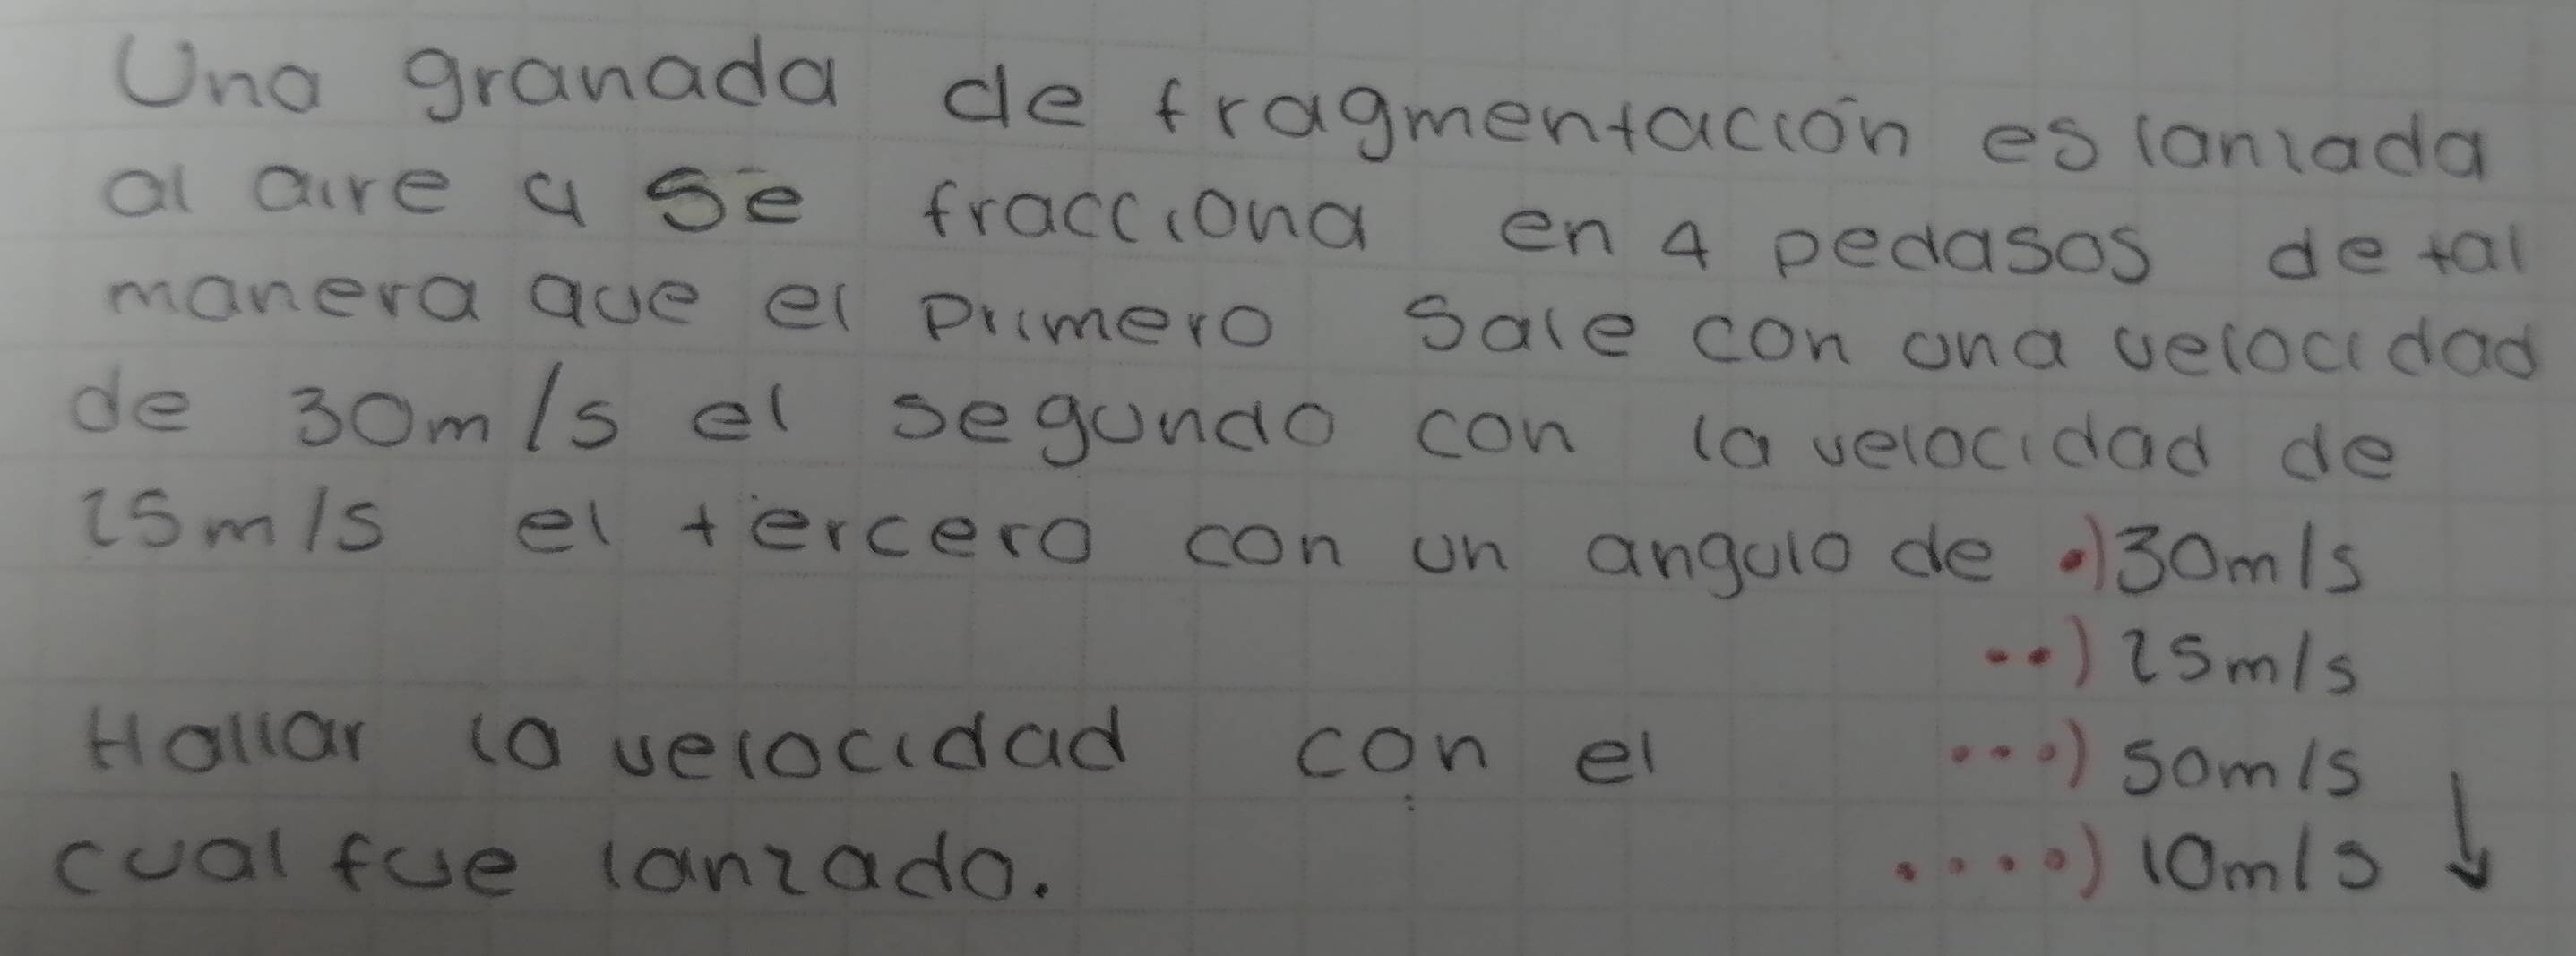 Una granada de fragmentación es lanzada
al aire y se fracciona en 4 pedasos de tal
manera que el primero sale con una velocidad
de 30m/s el segundo con la velocidad de
25m/s el tercero con un angulo de •)30m/s
••) 25m/s
Hallar la velocidad con el •••) 50m/s
cual fue lanzado. ••••) 10m/s ↓